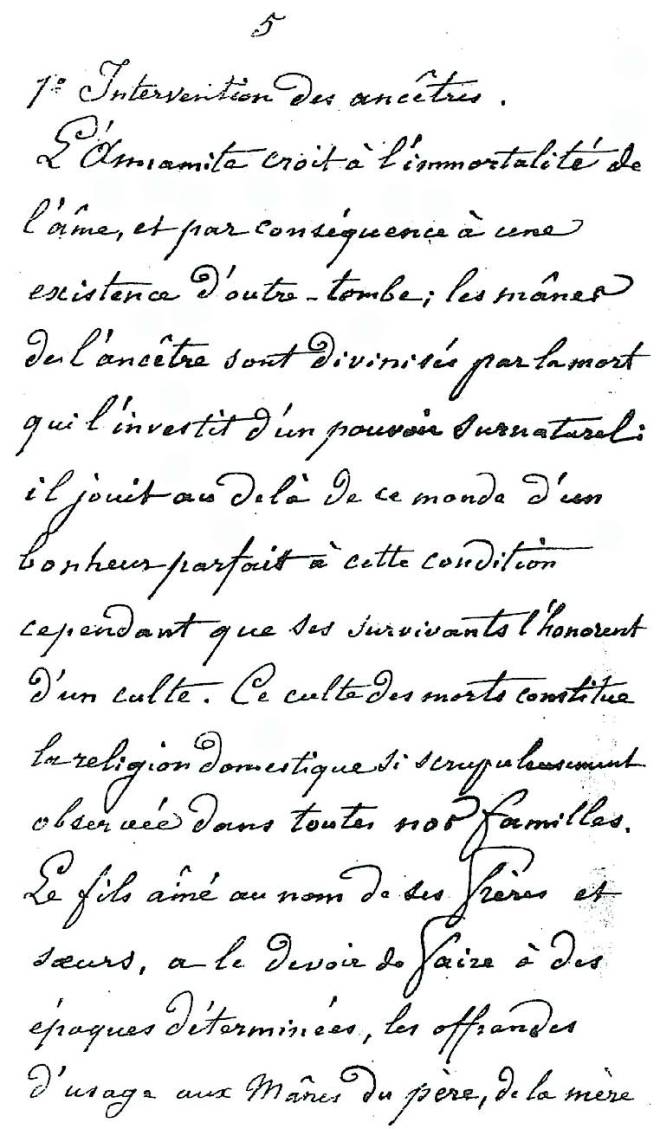 5
1º Intervention des ancêtres.
L'Annamite croit à l'immortalité de
l'âme, et par conséquence à une
existence d'outre-tombe; les mânes
de l'ancêtre sont divinisés par la mort
qui l'investit d'un pouvoir surnaturel:
il jouit au delà de ce monde d'un
bonheur parfait à cette condition
cependant que ses survivants l'honorent
d'un culte. Ce culte des morts constitue
la religion domestique si scrupuleusement
observée dans toutes nos familles.
Le fils aîné au nom de ses frères et
sœurs, a le devoir de faire à des
époques déterminées, les offrandes
d'usage aux Mânes du père, de la mère